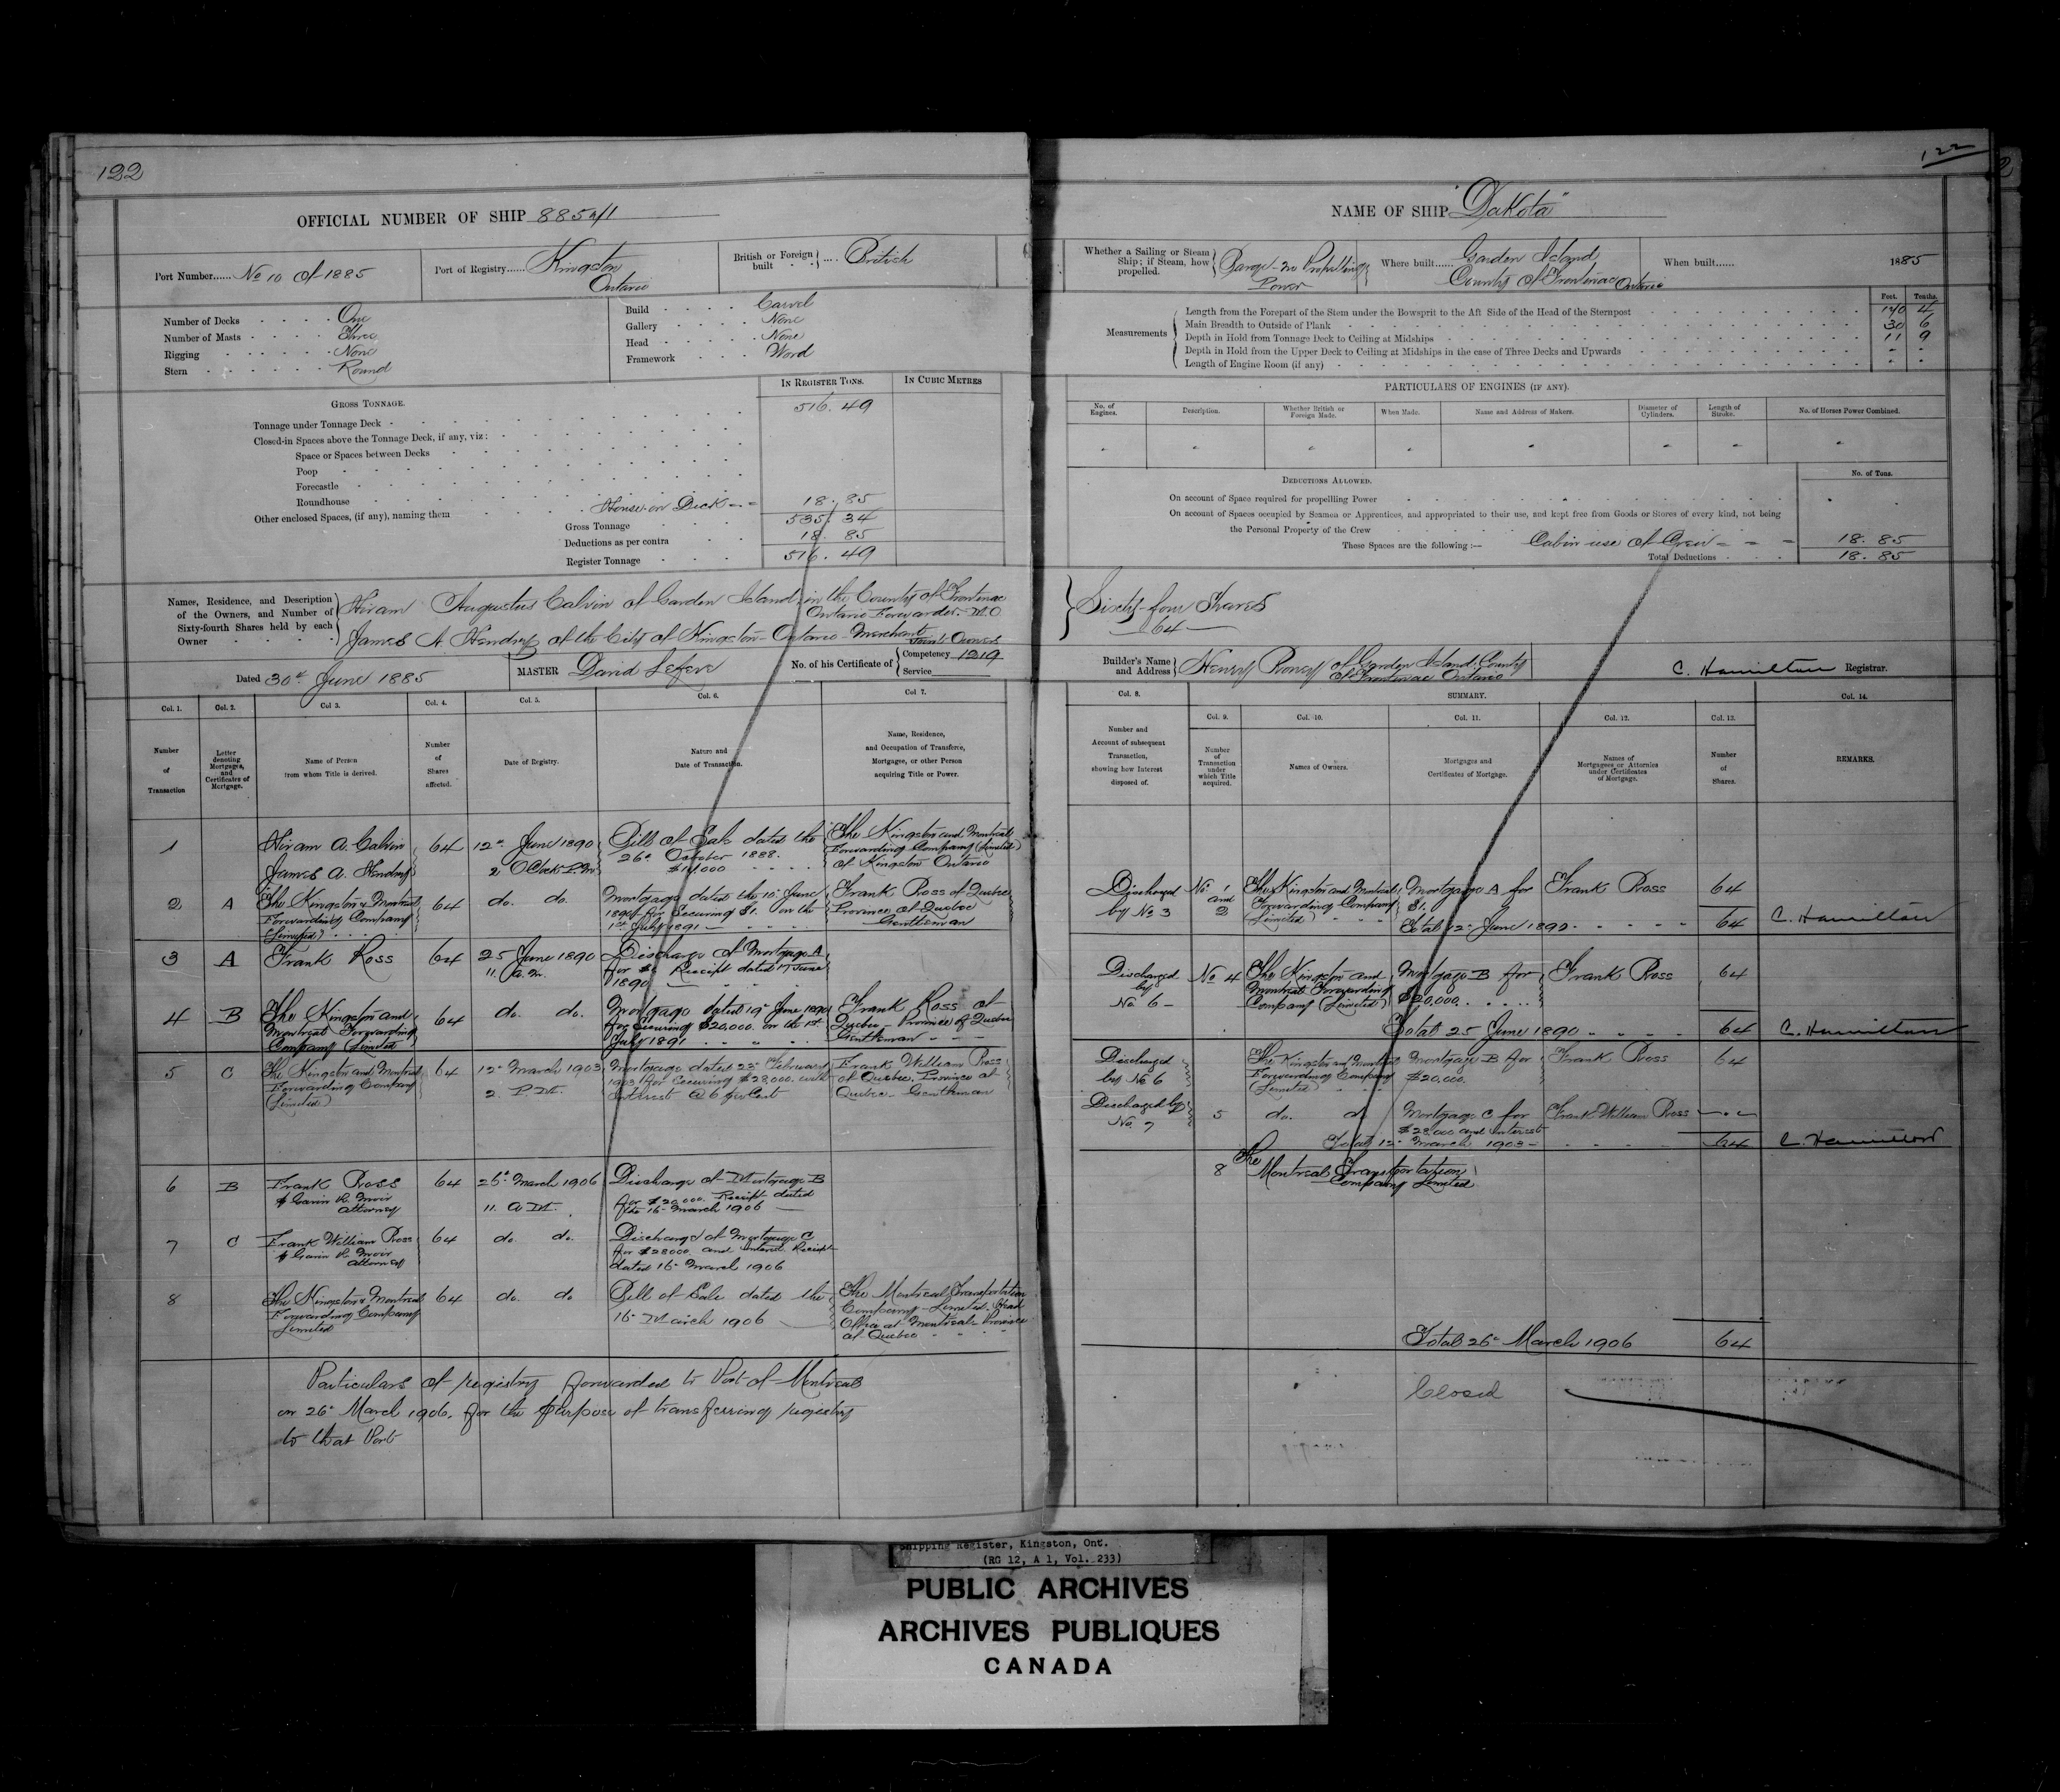 122
OFFICIAL NUMBER OF SHIP
Port Number...... No 10 of 1885
Port of Registry...... Kingston
Ontario
British or Foreign built .... British
Number of Decks One
Number of Masts Three
Rigging None
Stern Round
Build Carvel
Gallery None
Head None
Framework Wood
IN REGISTER TONS.
IN CUBIC METRES
GROSS TONNAGE.
Tonnage under Tonnage Deck 516. 49
Closed-in Spaces above the Tonnage Deck, if any, viz:
Space or Spaces between Decks
Poop
Forecastle
Roundhouse
Other enclosed Spaces, (if any), naming them House on Deck 18. 85
Gross Tonnage 535. 34
Deductions as per contra 18. 85
Register Tonnage 516. 49
Names, Residence, and Description of the Owners, and Number of Sixty-fourth Shares held by each Owner
Hiram Augustus Calvin of Garden Island in the County of Frontenac
Ontario Forwarder
James A. Hendry of the City of Kingston - Ontario - Merchant Joint Owners
Dated 30th June 1885
MASTER David Lefevre
No. of his Certificate of
Competency 1219
Service
Col. 1.
Number of Transaction
Col. 2.
Letter denoting Mortgages, and Certificates of Mortgage.
Col 3.
Name of Person from whom Title is derived.
Col. 4.
Number of Shares affected.
Col. 5.
Date of Registry.
Col. 6.
Nature and Date of Transaction.
Col 7.
Name, Residence, and Occupation of Transferee, Mortgagee, or other Person acquiring Title or Power.
1
Hiram A. Calvin
James A. Hendry
64
12th June 1890
2 OClock P.M
Bill of Sale dated the
26th October 1888.
$14,000
The Kingston and Montreal
Forwarding Company (Limited)
of Kingston Ontario
2 A
The Kingston & Montreal
Forwarding Company
(Limited)
64 do. do.
Mortgage dated the 10th June
1890 for Securing $1. on the
1st July 1891
Frank Ross of Quebec
Province of Quebec
Gentleman
3 A Frank Ross 64
25 June 1890
11. a.m.
Discharge of Mortgage A
for $1 Receipt dated 17 June
1890
4 B
The Kingston and
Montreal Forwarding
Company (Limited
64 do. do.
Mortgage dated 19th June 1890
for Securing $20,000. on the 1st
July 1891
Frank Ross of
Quebec - Province of Quebec
Gentleman
5 C
The Kingston and Montreal
Forwarding Company
(Limited)
64
12th March 1903
2. P.M.
Mortgage dated 23rd February
1903 for Securing $28,000. with
Interest @ 6 per Cent
Frank William Ross
of Quebec, Province of
Quebec - Gentleman
6 B
Frank Ross
Attorney
64
26th March 1906
11. A M.
Discharge of Mortgage B
for $20,000. Receipt dated
the 16th March 1906
7 C
Frank William Ross
Attorney
64 do. do.
Discharge of Mortgage C
for $28000 and interest Receipt
dated 16th March 1906
8
The Kingston & Montreal
Forwarding Company
Limited
64 do. do
Bill of Sale dated the
16th March 1906
The Montreal Transportation
Company - Limited. Head
Office at Montreal - Province
of Quebec
Particulars of registry forwarded to Port of Montreal
on 26th March 1906. for the purpose of transferring registry
to that Port
122
NAME OF SHIP "Dakota"
Whether a Sailing or Steam Ship; if Steam, how propelled.
Barge - no Propelling
Power
Where built...... Garden Island
County of Frontenac Ontario
When built...... 1885
Measurements
Feet. Tenths.
Length from the Forepart of the Stem under the Bowsprit to the Aft Side of the Head of the Sternpost
Main Breadth to Outside of Plank 30 6
Depth in Hold from Tonnage Deck to Ceiling at Midships 11 9
Depth in Hold from the Upper Deck to Ceiling at Midships in the case of Three Decks and Upwards
Length of Engine Room (if any)
PARTICULARS OF ENGINES (IF ANY).
No. of Engines.
Description.
Whether British or Foreign Made.
When Made.
Name and Address of Makers.
Diameter of Cylinders.
Length of Stroke.
No. of Horses Power Combined.
DEDUCTIONS ALLOWED.
No. of Tons.
On account of Space required for propelling Power
On account of Spaces occupied by Seamen or Apprentices, and appropriated to their use, and kept free from Goods or Stores of every kind, not being
the Personal Property of the Crew
These Spaces are the following :— Cabin use of Crew 18. 85
Total Deductions 18. 85
Sixty-four Shares
64
Builder's Name and Address
Henry Roney of Garden Island, County
of Frontenac Ontario
C. Hamilton Registrar.
Col. 8.
Number and Account of subsequent Transaction, showing how Interest disposed of.
SUMMARY.
Col. 9.
Number of Transaction under which Title acquired.
Col. 10.
Names of Owners.
Col. 11.
Mortgages and Certificates of Mortgage.
Col. 12.
Names of Mortgagees or Attornies under Certificates of Mortgage.
Col. 13.
Number of Shares.
Col. 14.
REMARKS.
Discharged
by No 3
No 1
and
2
The Kingston and Montreal
Forwarding Company
(Limited)
Mortgage A for
$1.
Frank Ross
64
Total 12th June 1890. 64 C. Hamilton
Discharged
by
No 6
No 4
The Kingston and
Montreal Forwarding
Company (Limited)
Mortgage B for
$20,000.
Frank Ross
64
Total 25 June 1890 64 C. Hamilton
Discharged
by No 6
The Kingston and Montreal
Forwarding Company
(Limited)
Mortgage B for
$20.000.
Frank Ross
64
Discharged by
No. 7
5 do. do
Mortgage C for
$28,000 and interest
Frank William Ross
Total 12th March 1903 64 C. Hamilton
8
The
Montreal Transportation
Company Limited
Total 26th March 1906 64
Closed
Shipping Register, Kingston, Ont.
(RG 12, A 1, Vol. 233)
PUBLIC ARCHIVES
ARCHIVES PUBLIQUES
CANADA